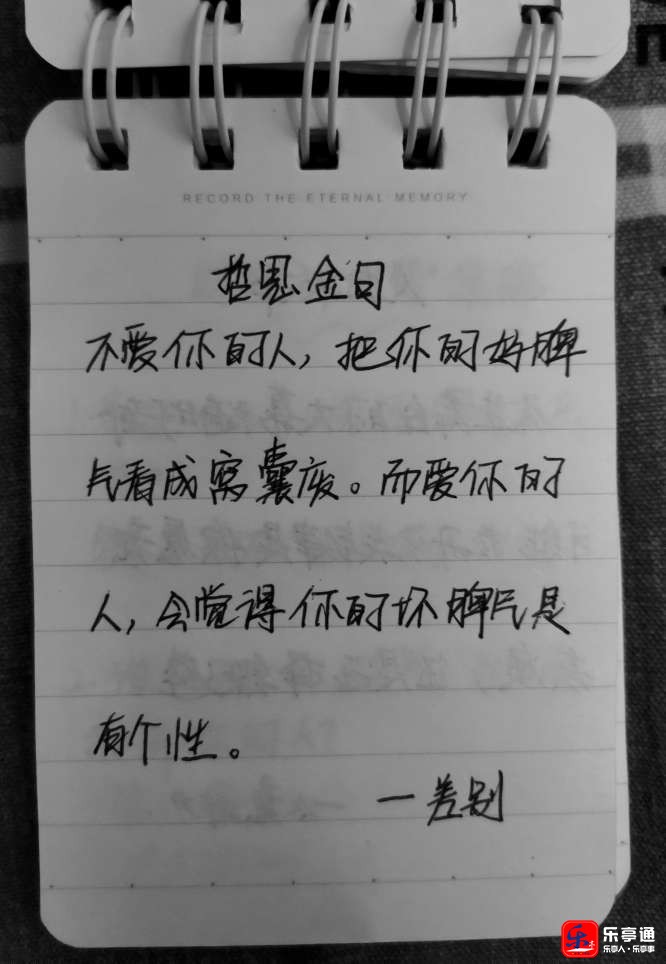 RECORD THE ETERNAL MEMORY
哲思金句
不爱你的人，把你的好脾
气看成窝囊废。而爱你的
人，会觉得你的坏脾气是
有个性。
一差别
乐亭通
乐亭人·乐亭事